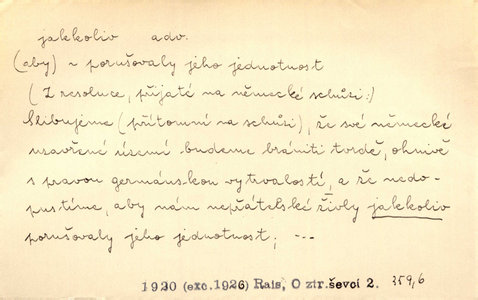 jakkoliv adv.
(aby) ~ porušovaly jeho jednotnost
(Z resoluce, přijaté na německé schůzi:)
Slibujeme (přítomní na schůzi), že své německé
uzavřené území budeme brániti tvrdě, ohnivě
s pravou germánskou vytrvalostí, a že nedo-
pustíme, aby nám nepřátelské živly jakkoliv
porušovaly jeho jednotnost; ---
1920 (exc.1926) Rais, O ztr.ševci 2. 359,6